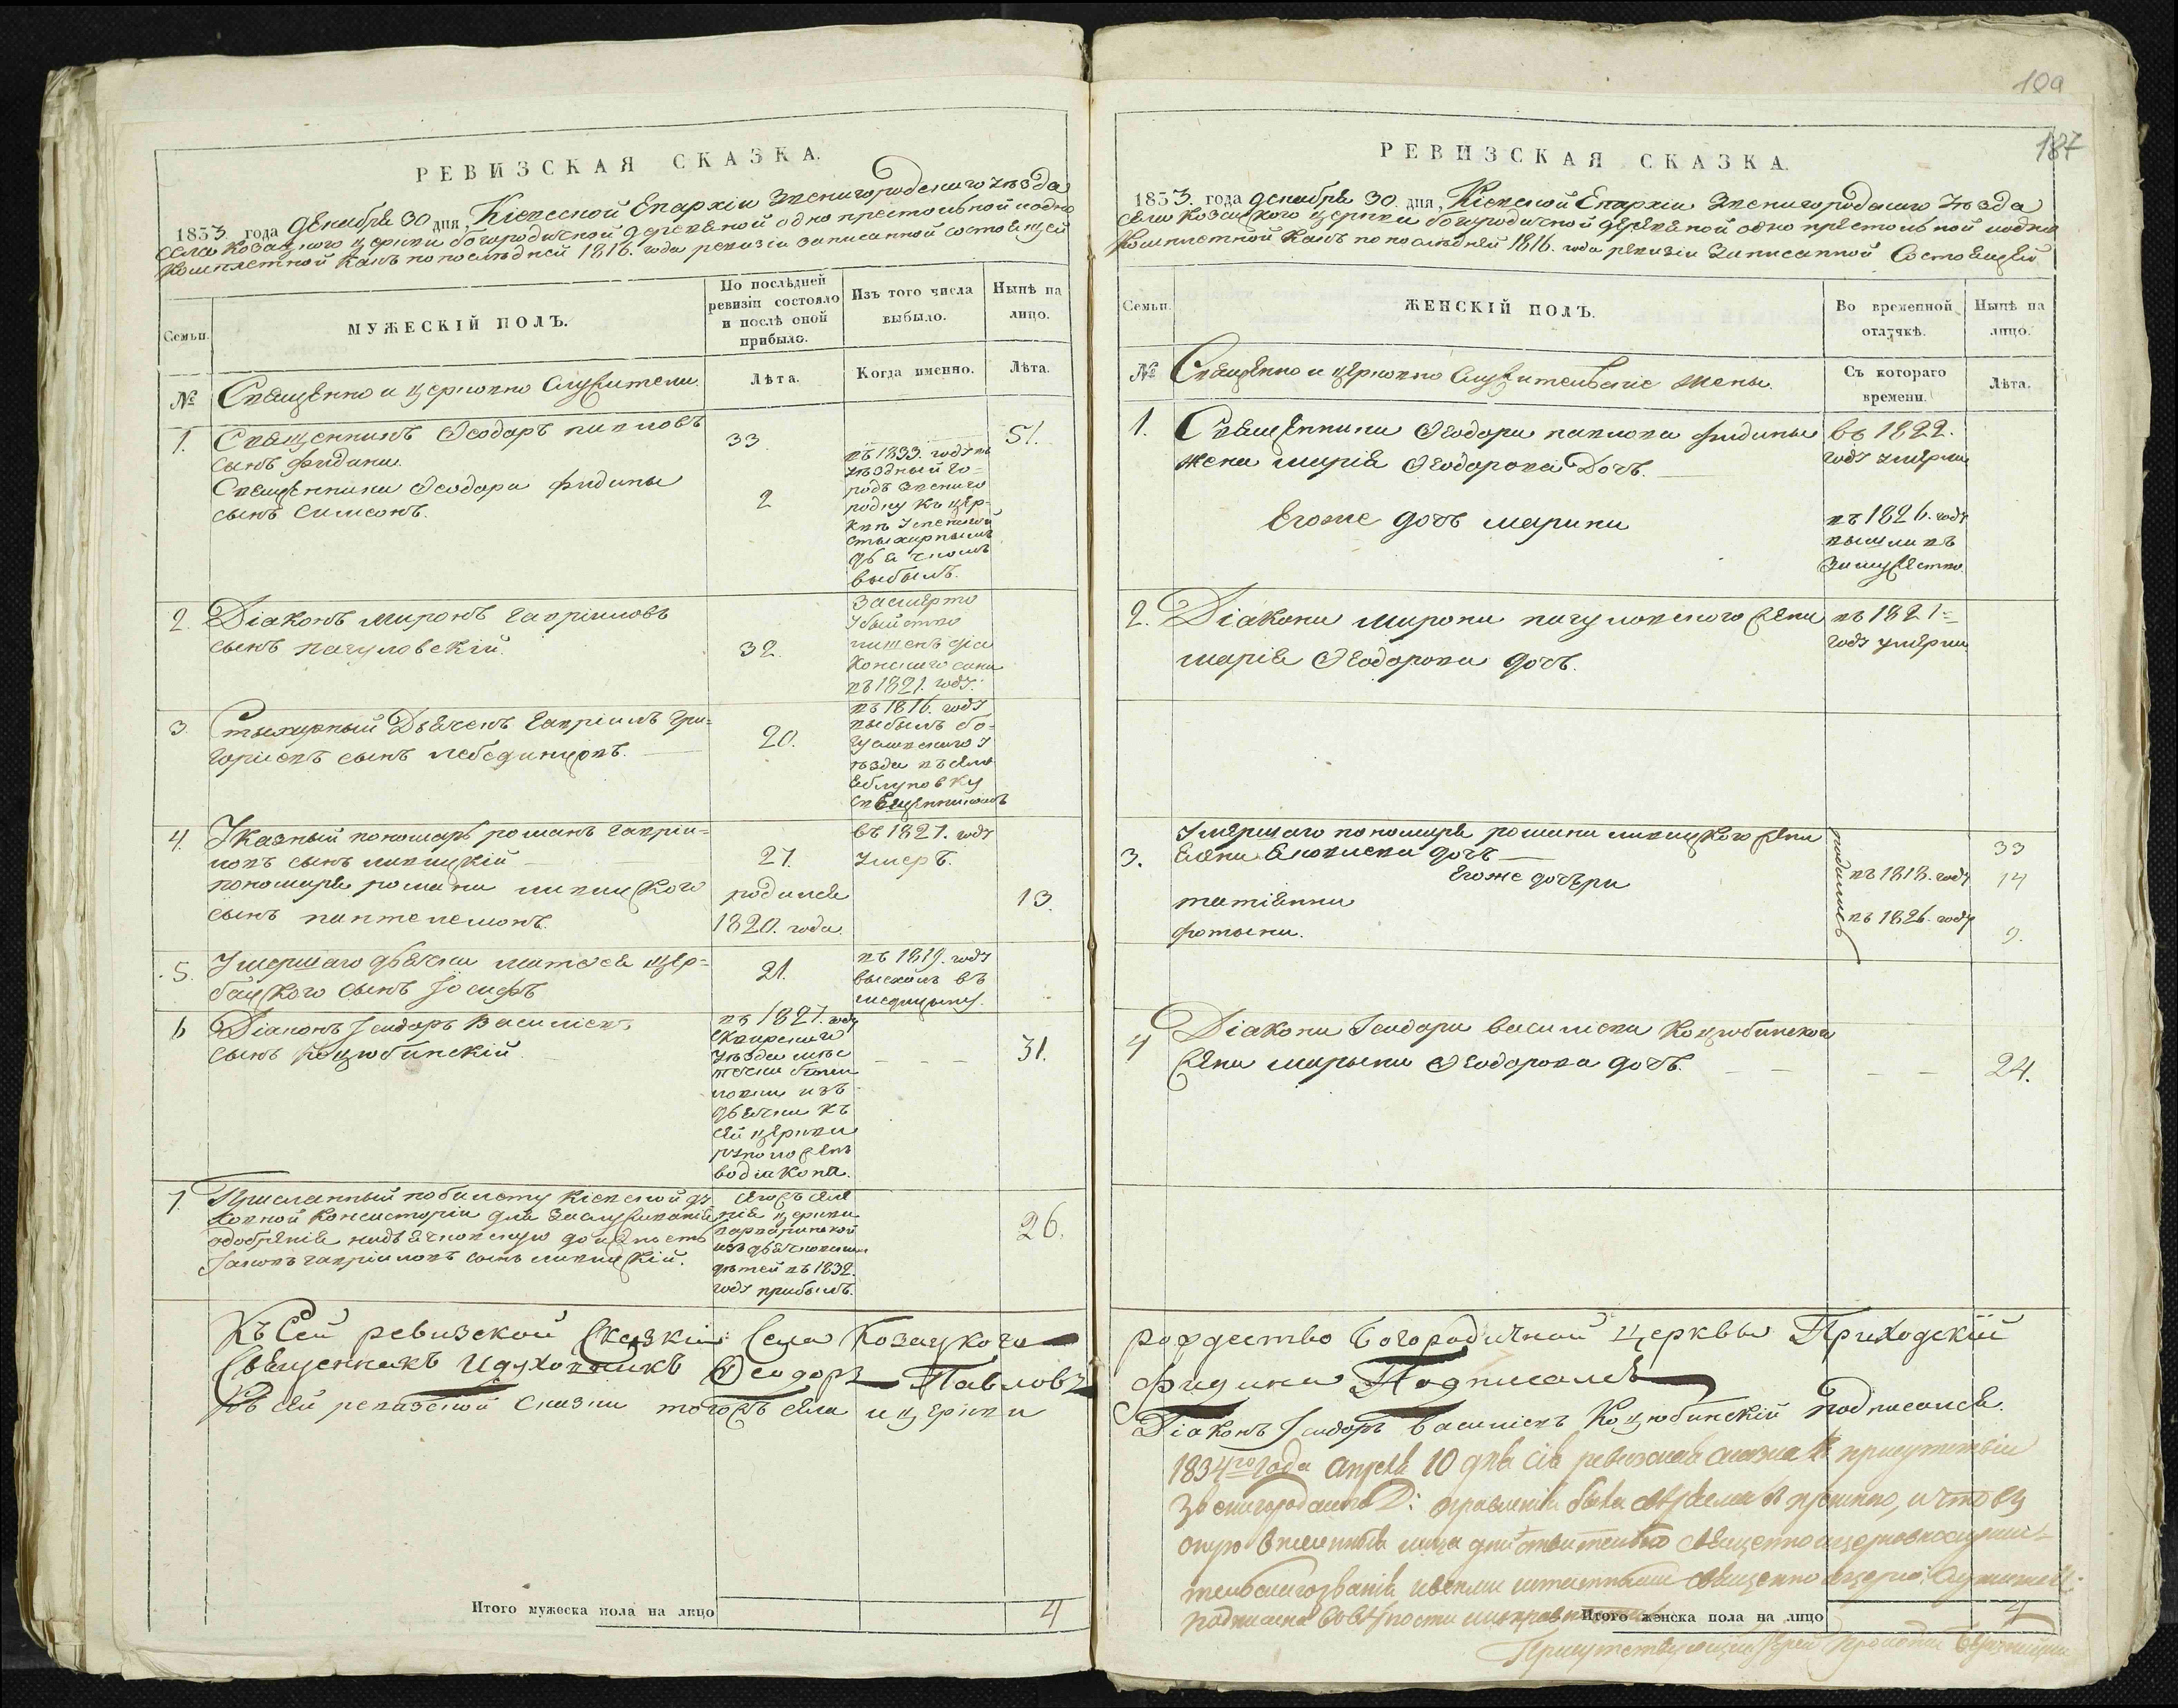 РЕВИЗСКАЯ СКАЗКА.
1833. года декабря 30 дня, Кіевской Епархіи Звенигородского уезда
села Козацкого церкви богородичной деревяной однопрестольной и одно
комплетной какъ по последней 1816. года ревизіи записанной состоящей
Семьи.
МУЖЕСКІЙ ПОЛЪ.
По послѣдней
ревизіи состояло
и послѣ оной
прибыло.
Изъ того числа
выбыло.
Нынѣ на
лицо.
№
Священно и церковно служители.
Лѣта.
Когда именно.
Лѣта.
1. Священникъ Ѳеодоръ павловъ 33 51.
сынъ фидина.
Священника Ѳеодора фидины 2
сынъ Симеонъ.
въ 1833. году въ
уездный го-
родъ Звениго
родку къ цер-
кви Успенской
стыхарнымъ
дьячкомъ
выбылъ.
2. Діаконъ миронъ гавріиловъ
сынъ 32.
За смерто
убыйство
лишенъ діа
конского сана
въ 1821. году.
3. Стыхарный Дьячекъ гавріилъ гри-
горіевъ сынъ лебединцовъ. 20.
въ 1816. году
выбылъ бо-
гуславского у
езда въ село
яблуновку
священникомъ
4. Указный пономарь романъ гавріи-
ловъ сынъ левицкій 27.
въ 1821. году
умеръ.
пономаря романа левицкого родился 13.
сынъ пантелеимонъ. 1820. года.
5. Умершаго дьячка матѳея щер-
бацкого сынъ Іосифъ 21.
въ 1819. году
въ
медицыну.
6 Діаконъ Ісидоръ Василіевъ
сынъ Коцюбинскій 31.
въ 1827. году
Сквирского
уезда мес
течка
изъ
дьячка къ
сей церкви
рукоположенъ
во діакона.
7 Присланный по билету кіевской ду
ховной консисторіи для заслуживанія
одобренія на дьячковскую должность
Іаковъ гавріиловъ сынъ левицкій. 26.
тогожъ села
церкви
изъ дьячковскихъ
детей въ 1832.
году прибылъ.
Къ сей ревизской Сказкѣ Села Козацкого
Священникъ и духовникъ Ѳеодоръ Павловъ
Къ сей ревизской сказки тогожъ села и церкви
Итого мужеска пола на лицо 4
109
187
РЕВИЗСКАЯ СКАЗКА.
1833. года декабря 30. дня, Кіевской Епархіи Звенигородского уезда
села Козацкого церкви богородичной деревяной однопрестольной и одно
комплетной какъ по последней 1816. года ревизіи записанной состоящей
Семьи.
ЖЕНСКІЙ ПОЛЪ.
Во временной
отлучкѣ.
Нынѣ на
лицо.
№
Священно и церковно служительскіе жены.
Съ котораго
времени.
Лѣта.
1. Священника Ѳеодора павлова фидины въ 1822.
жена марія Ѳеодорова Дочь. году умерла
Егоже дочь марина
въ 1826. году
вышла въ
замужество.
2. Діакона мирона жена въ 1821
марія Ѳеодорова дочь. году умерла
3. Умершаго пономаря романа левицкого жена
дочь 33
Егоже дочери родились
татіанна въ 1818. году 14
фотына. въ 1826. году 9.
4 Діакона Ісидора василіева коцюбинского
жена марына Ѳеодорова дочь. 24.
рождество Богородичной церквы Приходскій
фидина Подписалъ
Діаконъ Ісидоръ Василіевъ Коцюбинскій подписался.
1834го года апреля 10 дня сія ревизская сказка въ присутствіи
Звенигородского Д: правленія была и что въ
оную лица действительно священно
званія и всеми священно и церко: служители
подписана
Итого женска пола на лицо 4
Присутствующій Іерей